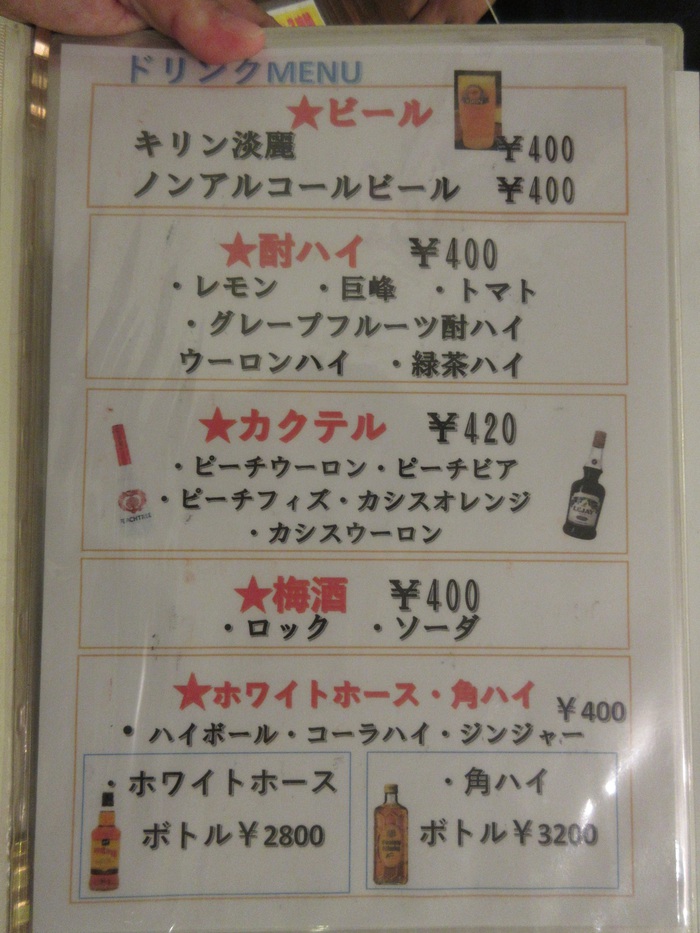 ドリンクMENU
★ビール
キリン淡麗 ￥400
ノンアルコールビール ￥400
★酎ハイ ￥400
・レモン ・巨峰 ・トマト
・グレープフルーツ酎ハイ
ウーロンハイ ・緑茶ハイ
★カクテル ￥420
・ピーチウーロン・ピーチビア
・ピーチフィズ・カシスオレンジ
・カシスウーロン
★梅酒 ￥400
・ロック ・ソーダ
★ホワイトホース・角ハイ ￥400
・ハイボール・コーラハイ・ジンジャー
・ホワイトホース
ボトル￥2800
・角ハイ
ボトル￥3200